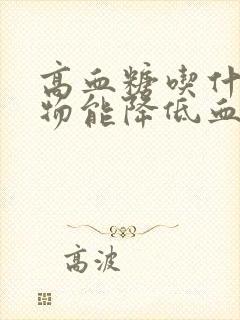 高血糖喫什
物能降低血
高波